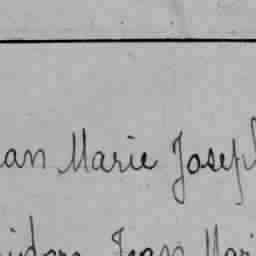 an Marie Joseph
Jean Mari